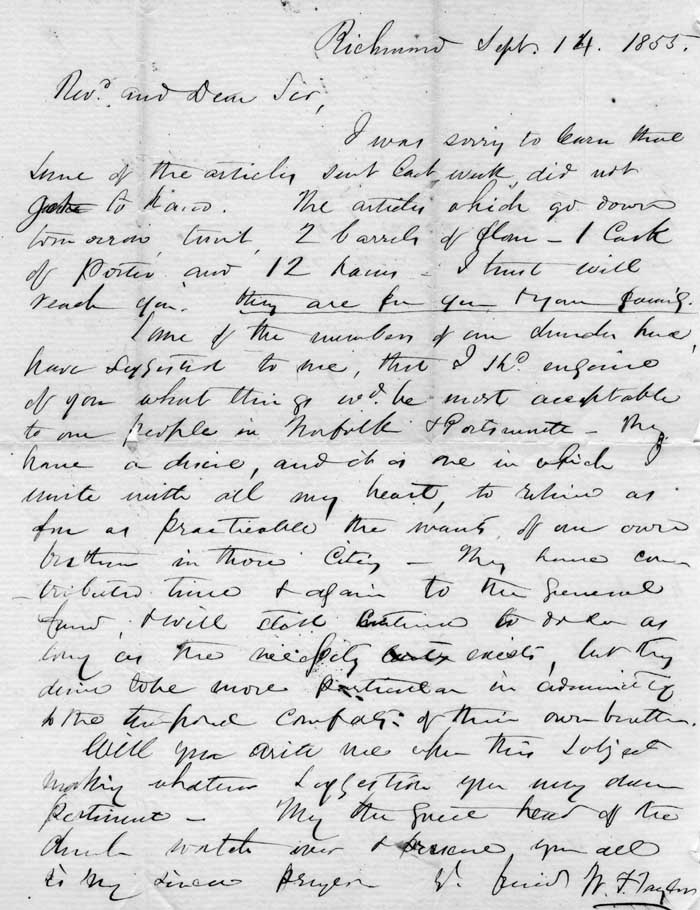 Richmond Sept. 14. 1855.
Revd. and Dear Sir,
I was sorry to learn that
some of the articles sent last week did not
get to hand. The articles which go down
tomorrow, to wit, 2 barrels of flour - 1 Cask
of Porter and 12 hams - I trust will
reach you. they are for you & your family.
Some of the members of our church here,
have suggested to me, that I shd. enquire
of you what things wd. be most acceptable
to our people in Norfolk & Portsmouth - They
have a desire, and it is one in which I
unite with all my heart, to relieve as
far as practicable the wants of our own
brethren in those Cities - They have con
-tributed time & again to the general
fund, & will still continue to do so as
long as the necessity exists, but they
desire to be more particular in administg
to the temporal comforts of their own brethren.
Will you write me upon this subject
making whatever suggestion you may deem
pertinent - May the great head of the
Church watch over & preserve you all
is my sincere prayer Yr. friend W. F. Taylor